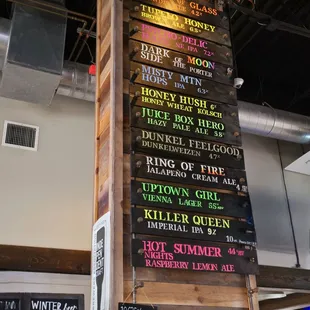 GLASS
TUPELO HONEY
BROWN ALE 6.5%
DELIC
IPA 7.2%
DARK SIDE OF THE MOON
PORTER
MISTY MTN
HOPS IPA 6.3%
HONEY HUSH 6%
HONEY WHEAT KÖLSCH
JUICE BOX HERO
HAZY PALE ALE 5.8%
DUNKEL FEELGOOD
DUNKELWEIZEN 4.7%
RING OF FIRE
JALAPEÑO CREAM ALE
UPTOWN GIRL
VIENNA LAGER 5.5%
KILLER QUEEN
IMPERIAL IPA 9%
HOT SUMMER
NIGHTS
RASPBERRY LEMON ALE
WINTER